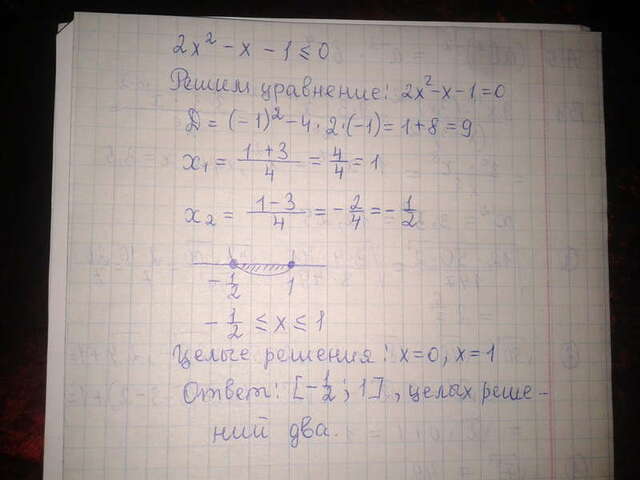 2x² - x - 1 ≤ 0
Решим уравнение: 2x² - x - 1 = 0
D = (-1)² - 4 · 2 · (-1) = 1 + 8 = 9
x₁ = (1 + 3)/4 = 4/4 = 1
x₂ = (1 - 3)/4 = -2/4 = -1/2
-1/2 1
-1/2 ≤ x ≤ 1
Целые решения: x = 0, x = 1
Ответ: [-1/2; 1], целых реше-
ний два.